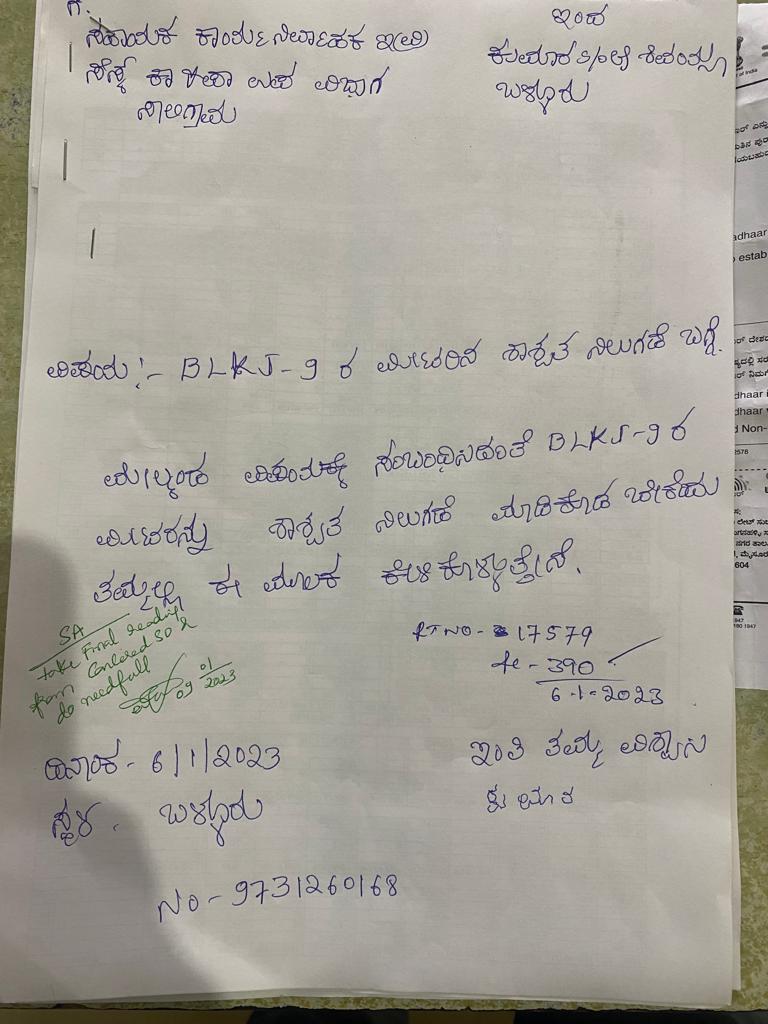 ಗೆ.
ಸಹಾಯಕ ಕಾರ್ಯನಿರ್ವಾಹಕ ಇ(ವಿ)
ಸೆಸ್ಕ್ ಕಾ ಮತ್ತು ಪಾ ಉಪ ವಿಭಾಗ
ಸಾಲಿಗ್ರಾಮ
ಇಂದ
ಕುಮಾರ S/o ಲೇ
ಬಳ್ಳೂರು
ವಿಷಯ :- BLKJ-9 ರ ಮೀಟರಿನ ಶಾಶ್ವತ ನಿಲುಗಡೆ ಬಗ್ಗೆ.
ಮೇಲ್ಕಂಡ ವಿಷಯಕ್ಕೆ ಸಂಬಂಧಿಸಿದಂತೆ BLKJ-9 ರ
ಮೀಟರನ್ನು ಶಾಶ್ವತ ನಿಲುಗಡೆ ಮಾಡಿಕೊಡ ಬೇಕೆಂದು
ತಮ್ಮಲ್ಲಿ ಈ ಮೂಲಕ ಕೇಳಿಕೊಳ್ಳುತ್ತೇನೆ.
RT NO - 17579
fe - 390
6-1-2023
SA
take Final reading
from Conlered SO &
do needfull
09 01 2023
ದಿನಾಂಕ - 6/1/2023
ಸ್ಥಳ. ಬಳ್ಳೂರು
ಇಂತಿ ತಮ್ಮ ವಿಶ್ವಾಸಿ
ಕುಮಾರ
NO - 9731260168